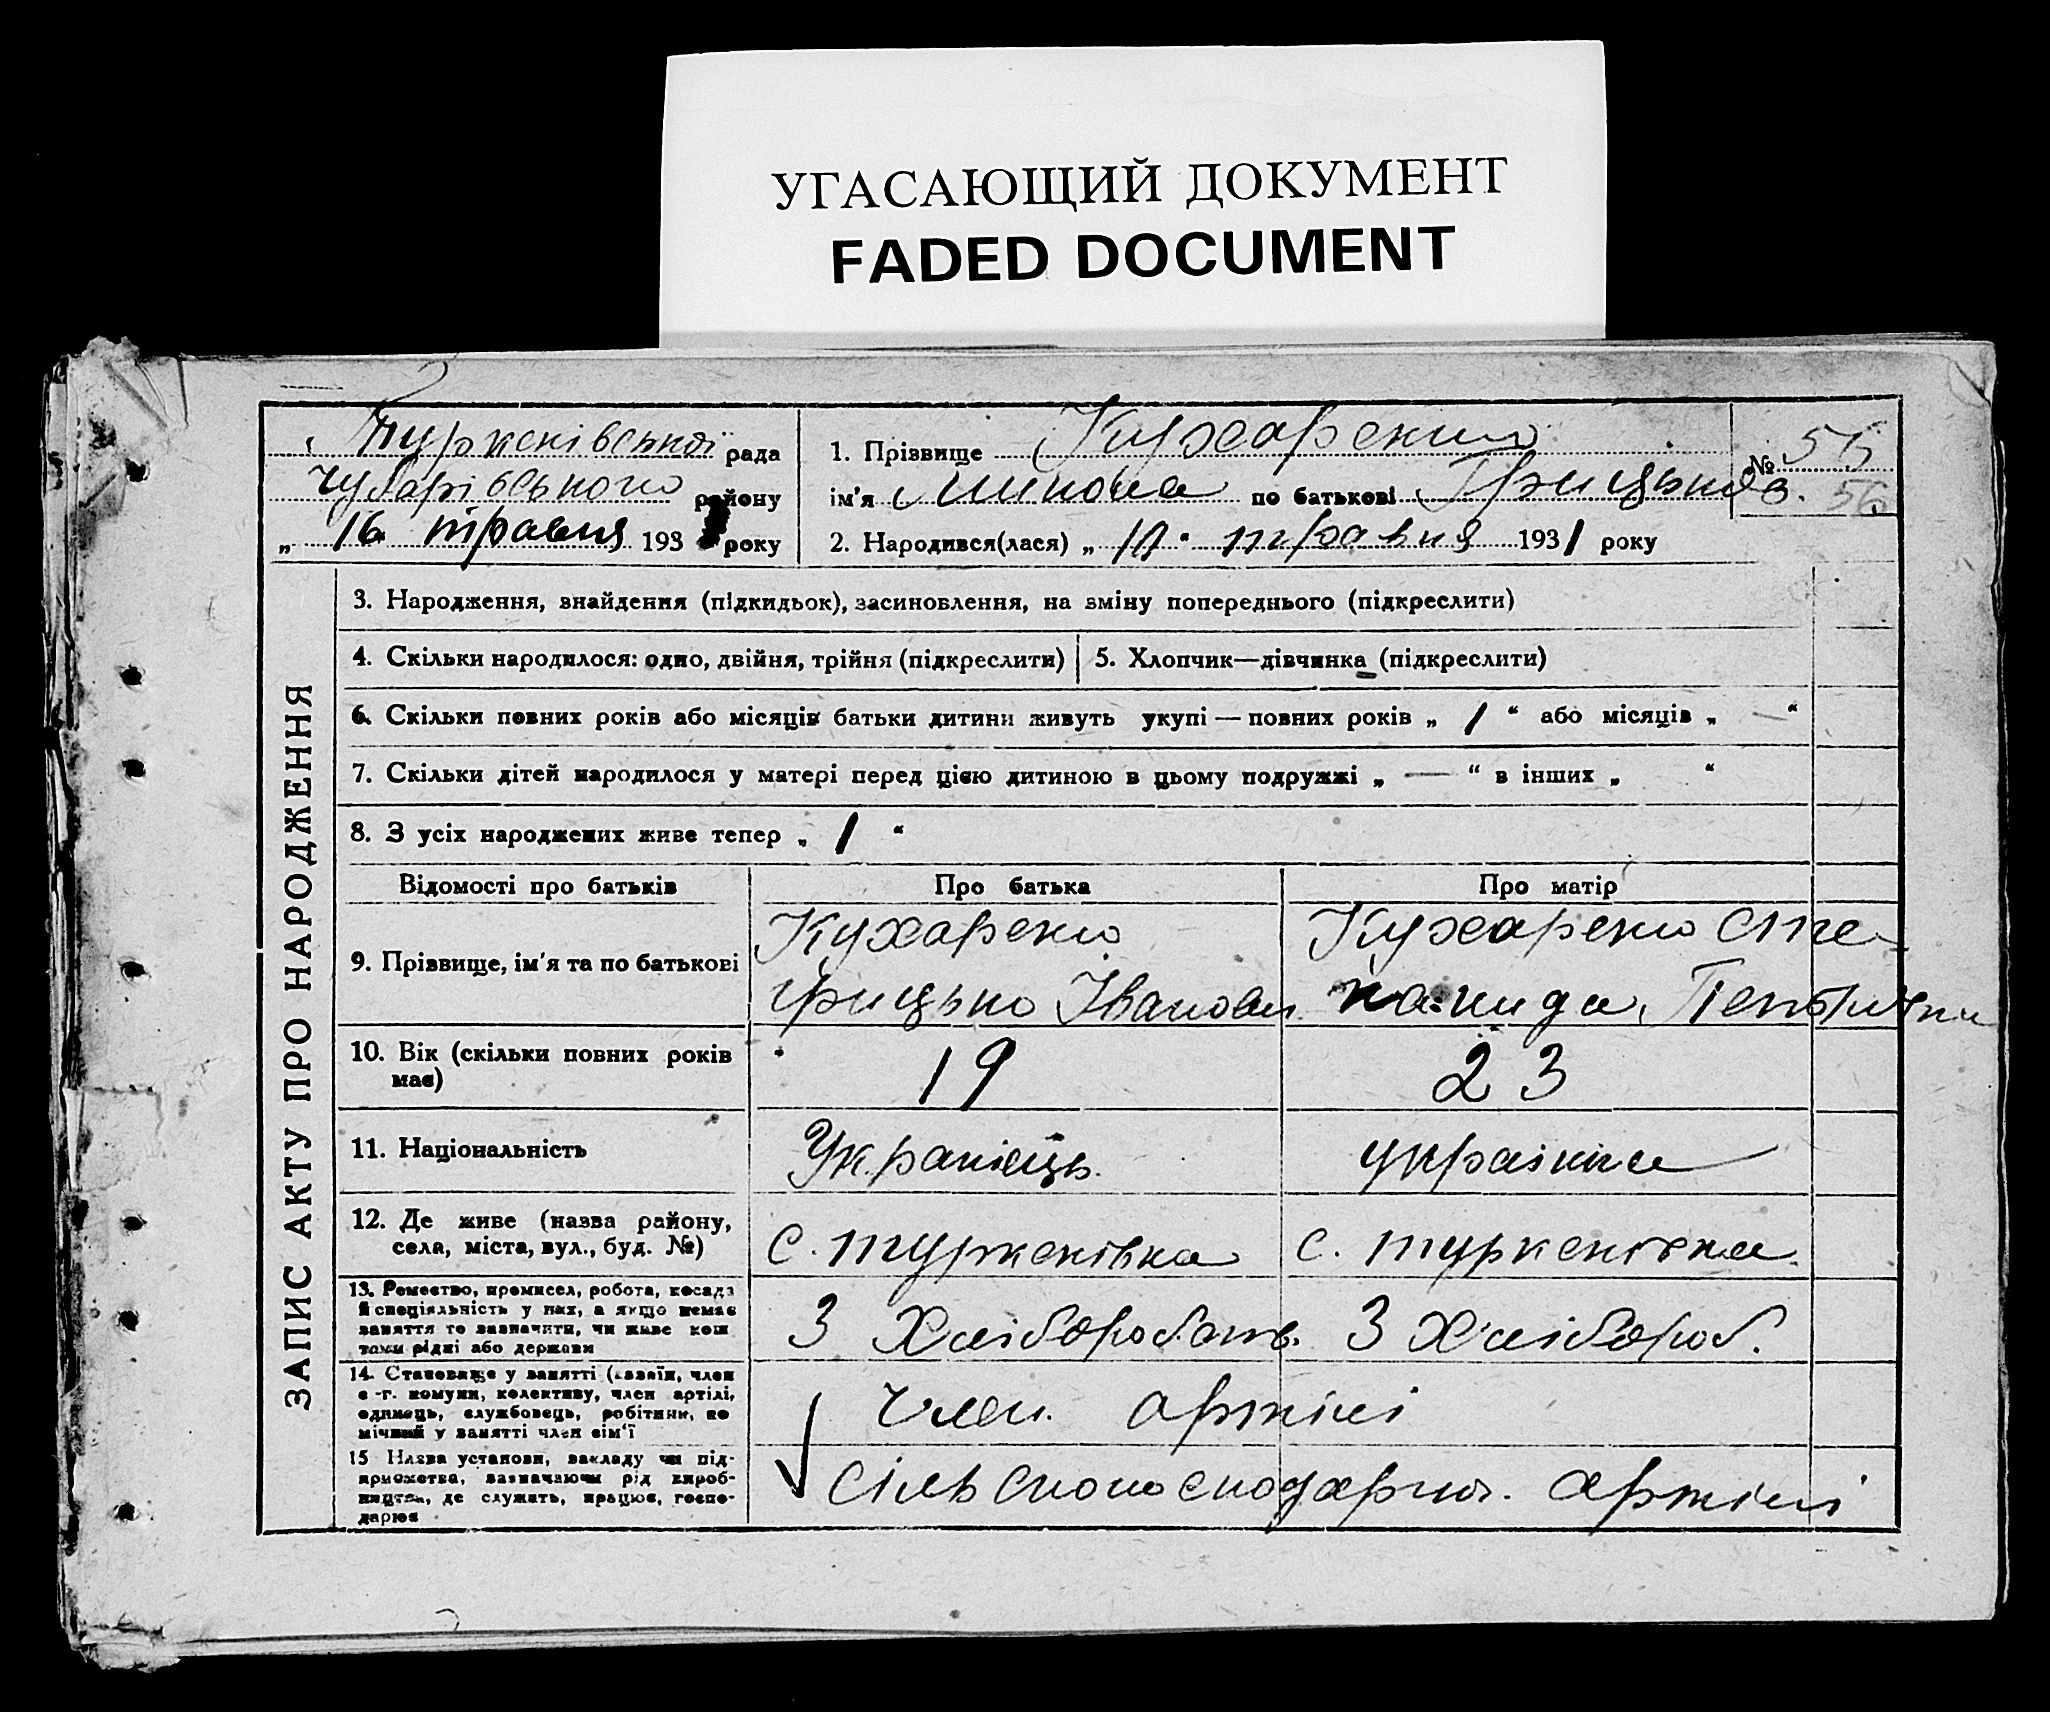 УГАСАЮЩИЙ ДОКУМЕНТ
FADED DOCUMENT
Туркенівської рада
Чубарівського району
„ 16 травня 193 року
1. Прізвище Кухаренко
ім'я Микола по батькові Грицьков.
№ 56
56
2. Народився(лася) „ травня 1931 року
ЗАПИС АКТУ ПРО НАРОДЖЕННЯ
3. Народження, знайдення (підкидьок), засиновлення, на зміну попереднього (підкреслити)
4. Скільки народилося: одно, двійня, трійня (підкреслити)
5. Хлопчик—дівчинка (підкреслити)
6. Скільки повних років або місяців батьки дитини живуть укупі — повних років „ 1 “ або місяців „ — “
7. Скільки дітей народилося у матері перед цією дитиною в цьому подружжі „ — “ в інших „ “
8. З усіх народжених живе тепер „ 1 “
Відомості про батьків
Про батька
Про матір
9. Прізвище, ім'я та по батькові
Кухаренко
Грицько Іванович
Кухаренко Сте-
панида
10. Вік (скільки повних років
має)
19
23
11. Національність
Українець
українка
12. Де живе (назва району,
села, міста, вул., буд. №)
с. Туркенівка
с. Туркенівка
13. Ремество, промисел, робота, посада
й спеціяльність у них, а якщо немає
заняття то зазначити, чи живе кош
тами рідні або держави
З Хліборобств.
З Хлібороб.
14. Становище у занятті (хазяїн, член
с.-г. комуни, колективу, член артілі,
одинець, службовець, робітник, по
мічний у занятті член сім'ї
Член артілі
15 Назва установи, закладу чи під-
приємства, зазначаючи рід вироб-
ництва, де служить, працює, госпо-
дарює
Сільськогосподарча. артілі